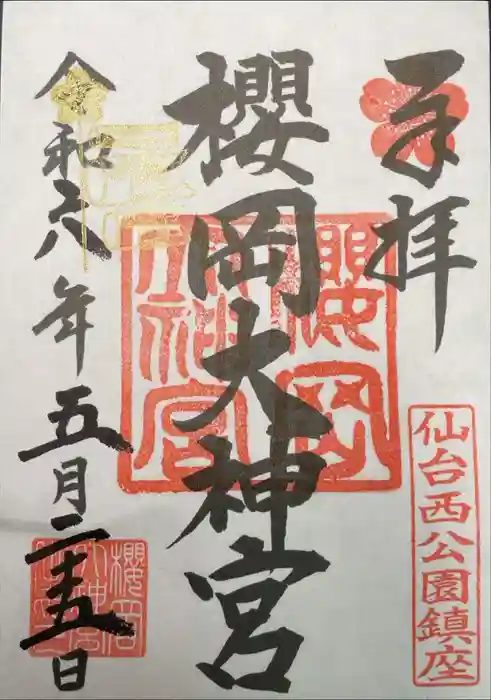 奉拝
仙台西公園鎮座
櫻岡大神宮
櫻岡
大神宮
令和六年五月二十五日
櫻岡
大神宮